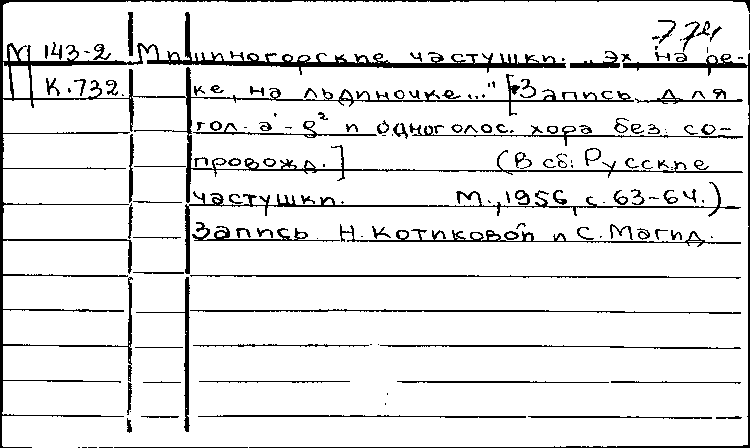 774
М 143-2 Мишиногорские частушки. „Эх, на ре-
К.732. ке, на льдиночке..." [Запись для
гол. a¹-g² и одноголос. хора без со-
провожд.] (В сб: Русские
частушки. М., 1956, с. 63-64.)
Запись Н. Котиковой и С. Магид.